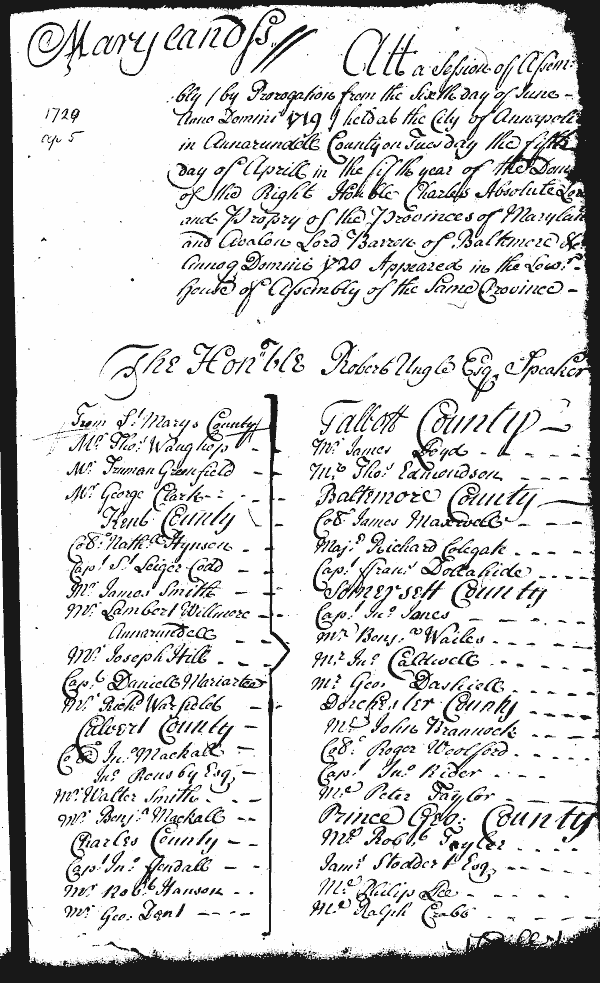 Maryland ss.
Att a Session of Assem
1720
ap 5
bly / by Prorogation from the Sixth day of June
Anno Domini 1719 / held at the City of Annapoli
in Annarundell County on Tuesday the fifth
day of Aprill in the fifth year of the Dom
of the Right Honble Charles Absolute Lor
and Propry of the Provinces of Marylan
and Avalon Lord Barron of Baltimore &c
Annoq Domini 1720 Appeared in the Lowr
house of Assembly of the same Province
The Honble Robert Ungle Esq. Speaker
From St Marys County
Mr Thos Waughop
Mr Truman Greenfield
Mr George Clark
Kent County
Coll: Nathl Hynson
Capt St Leiger Codd
Mr James Smith
Mr Lambert Willmore
Annarundell
Mr Joseph Hill
Capt Daniell Mariartee
Mr Richd Warfield
Calvert County
Coll Jno Mackall
Jno Rousby Esq;
Mr Walter Smith
Mr Benja Mackall
Charles County
Capt Jno Fendall
Mr Robt Hanson
Mr Geo: Dent
Talbott County
Mr James Lloyd
Mr Thos Edmondson
Baltimore County
Coll: James Maxwell
Majr Richard Colegate
Capt Frans Dollahide
Somersett County
Capt Jno Jones
Mr Benja Wailes
Mr Jno Caldwell
Mr Geo: Dashiell
Dorchester County
Mr John Brannock
Coll: Roger Woolford
Capt Jno Rider
Mr Peter Taylor
Prince Geo: County
Mr Robt Tyler
Jams Stoddert Esq
Mr Philip Lee
Mr Ralph Crabb